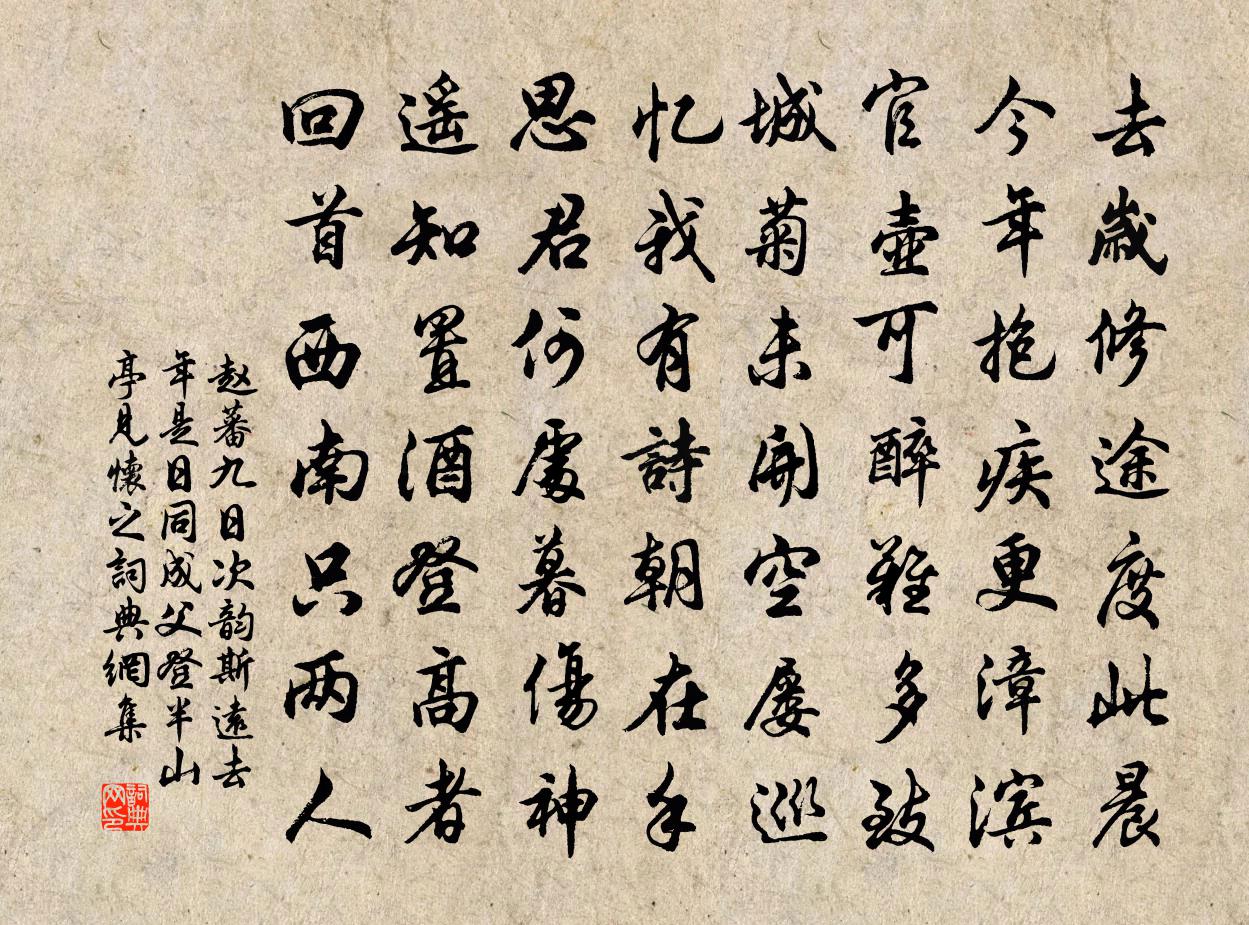 去歲修途度此晨
今年抱疾更漳滨
官壺可醉難多致
城菊未開空屡巡
忆我有詩朝在手
思君何處暮傷神
遥知置酒登高者
回首西南只两人
赵蕃九日次韵斯遠去
年是日同成父登半山
亭見懷之詞典網集
詞典
网印